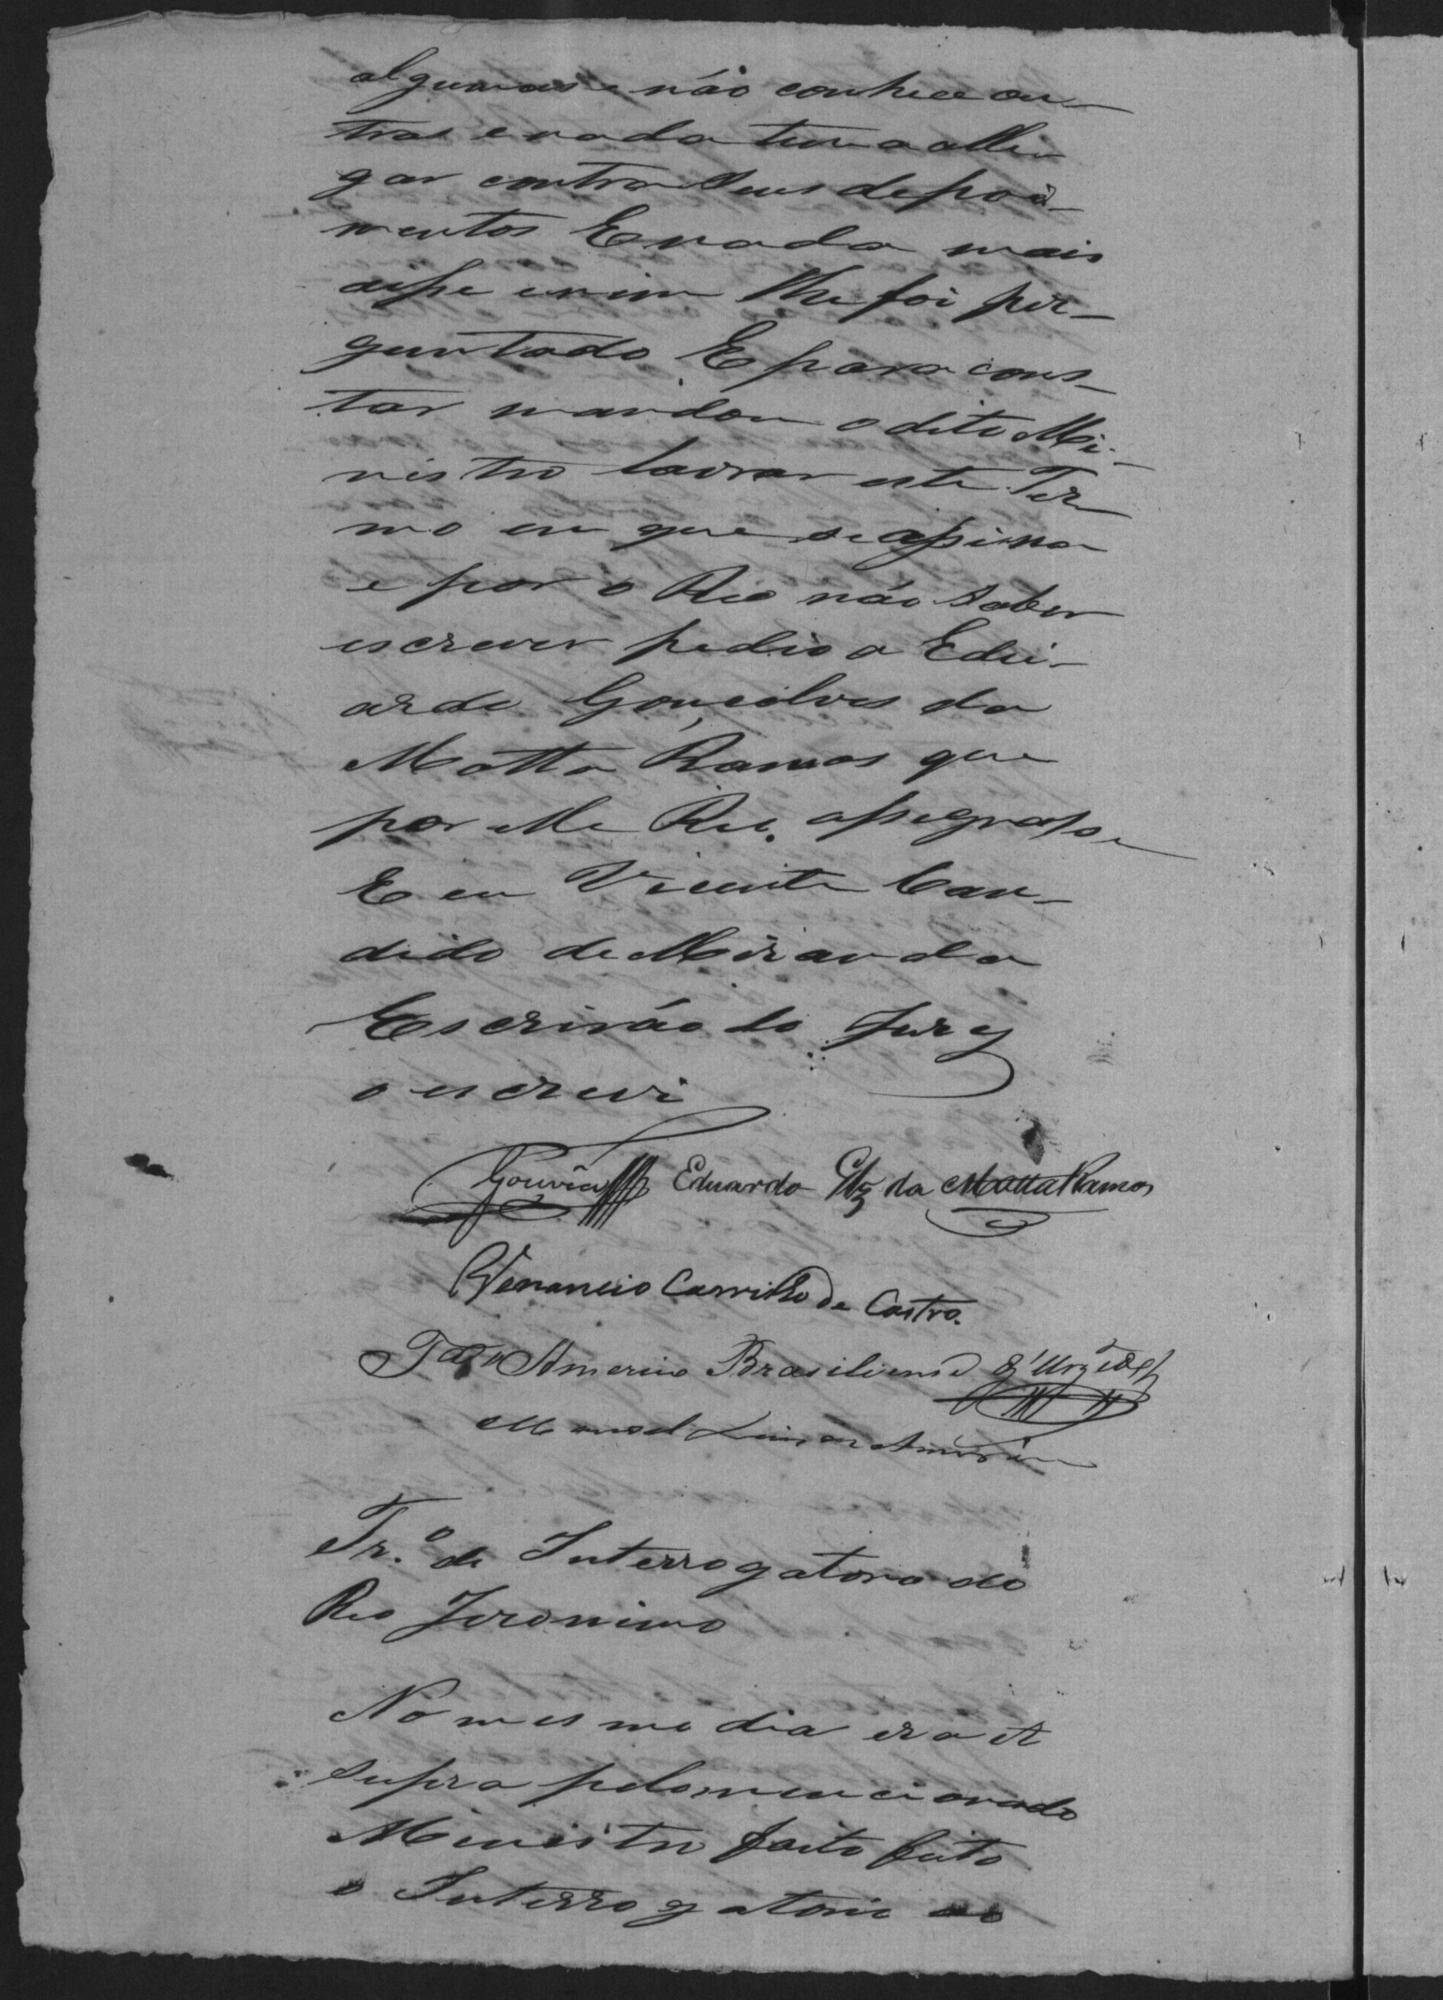 algumas e não conhece ou-
tras e nada tem a alle
gar contra seus depoi-
mentos E nada mais
disse e nem lhe foi per-
guntado. E para cons-
tar mandou o dito Mi-
nistro lavrar este Ter
mo em que se assina
e por o Reo não saber
escrever pedio a Edu-
ardo Gonçalves da
Motta Ramos que
por elle Reo. assignasse
E eu Vicente Can-
dido de Miranda
Escrivão do Jury
o escrevi
Gouvêa Eduardo Glz da Motta Ramos
Venancio Carrilho de Castro.
Americo Brasiliense
Manoel Luis de Amorim
Tr.º de Interrogatorio do
Reo Jeronimo
No mesmo dia era et
supra pelo mencionado
Ministro foi feito
o Interrogatorio ao